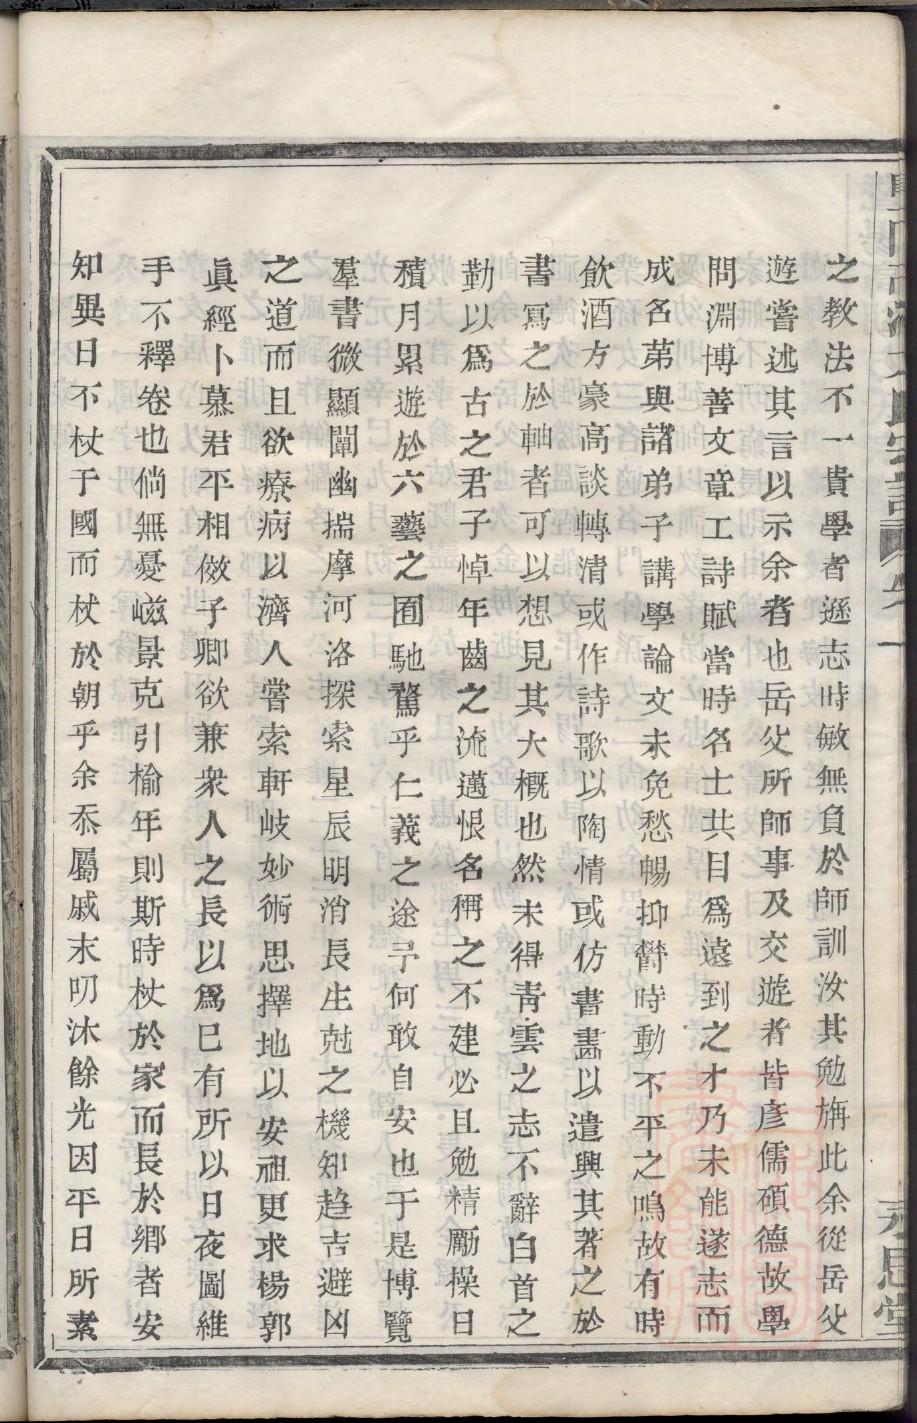 之教法不一貴學者遜志時敏無負於師訓汝其勉旃此余從岳父
遊嘗述其言以示余者也岳父所師事及交遊者皆彥儒碩德故學
問淵博善文章工詩賦當時名士共目爲遠到之才乃未能遂志而
成名苐與諸弟子講學論文未免愁暢抑鬱時動不平之鳴故有時
飲酒方豪高談轉清或作詩歌以陶情或仿書畵以遣興其著之於
書寫之於軸者可以想見其大概也然未得靑雲之志不辭白首之
勤以爲古之君子悼年齒之流邁恨名稱之不建必且勉精勵操日
積月累遊於六藝之囿馳騖乎仁義之途予何敢自安也于是博覽
羣書微顯闡幽揣摩河洛探索星辰明消長生尅之機知趋吉避凶
之道而且欲療病以濟人嘗索軒岐妙術思擇地以安祖更求楊郭
眞經卜慕君平相傚子卿欲兼衆人之長以爲已有所以日夜圖維
手不釋卷也倘無憂崦景克引榆年則斯時杖於家而長於鄉者安
知異日不杖于國而杖於朝乎余忝屬戚末叨沐餘光因平日所素